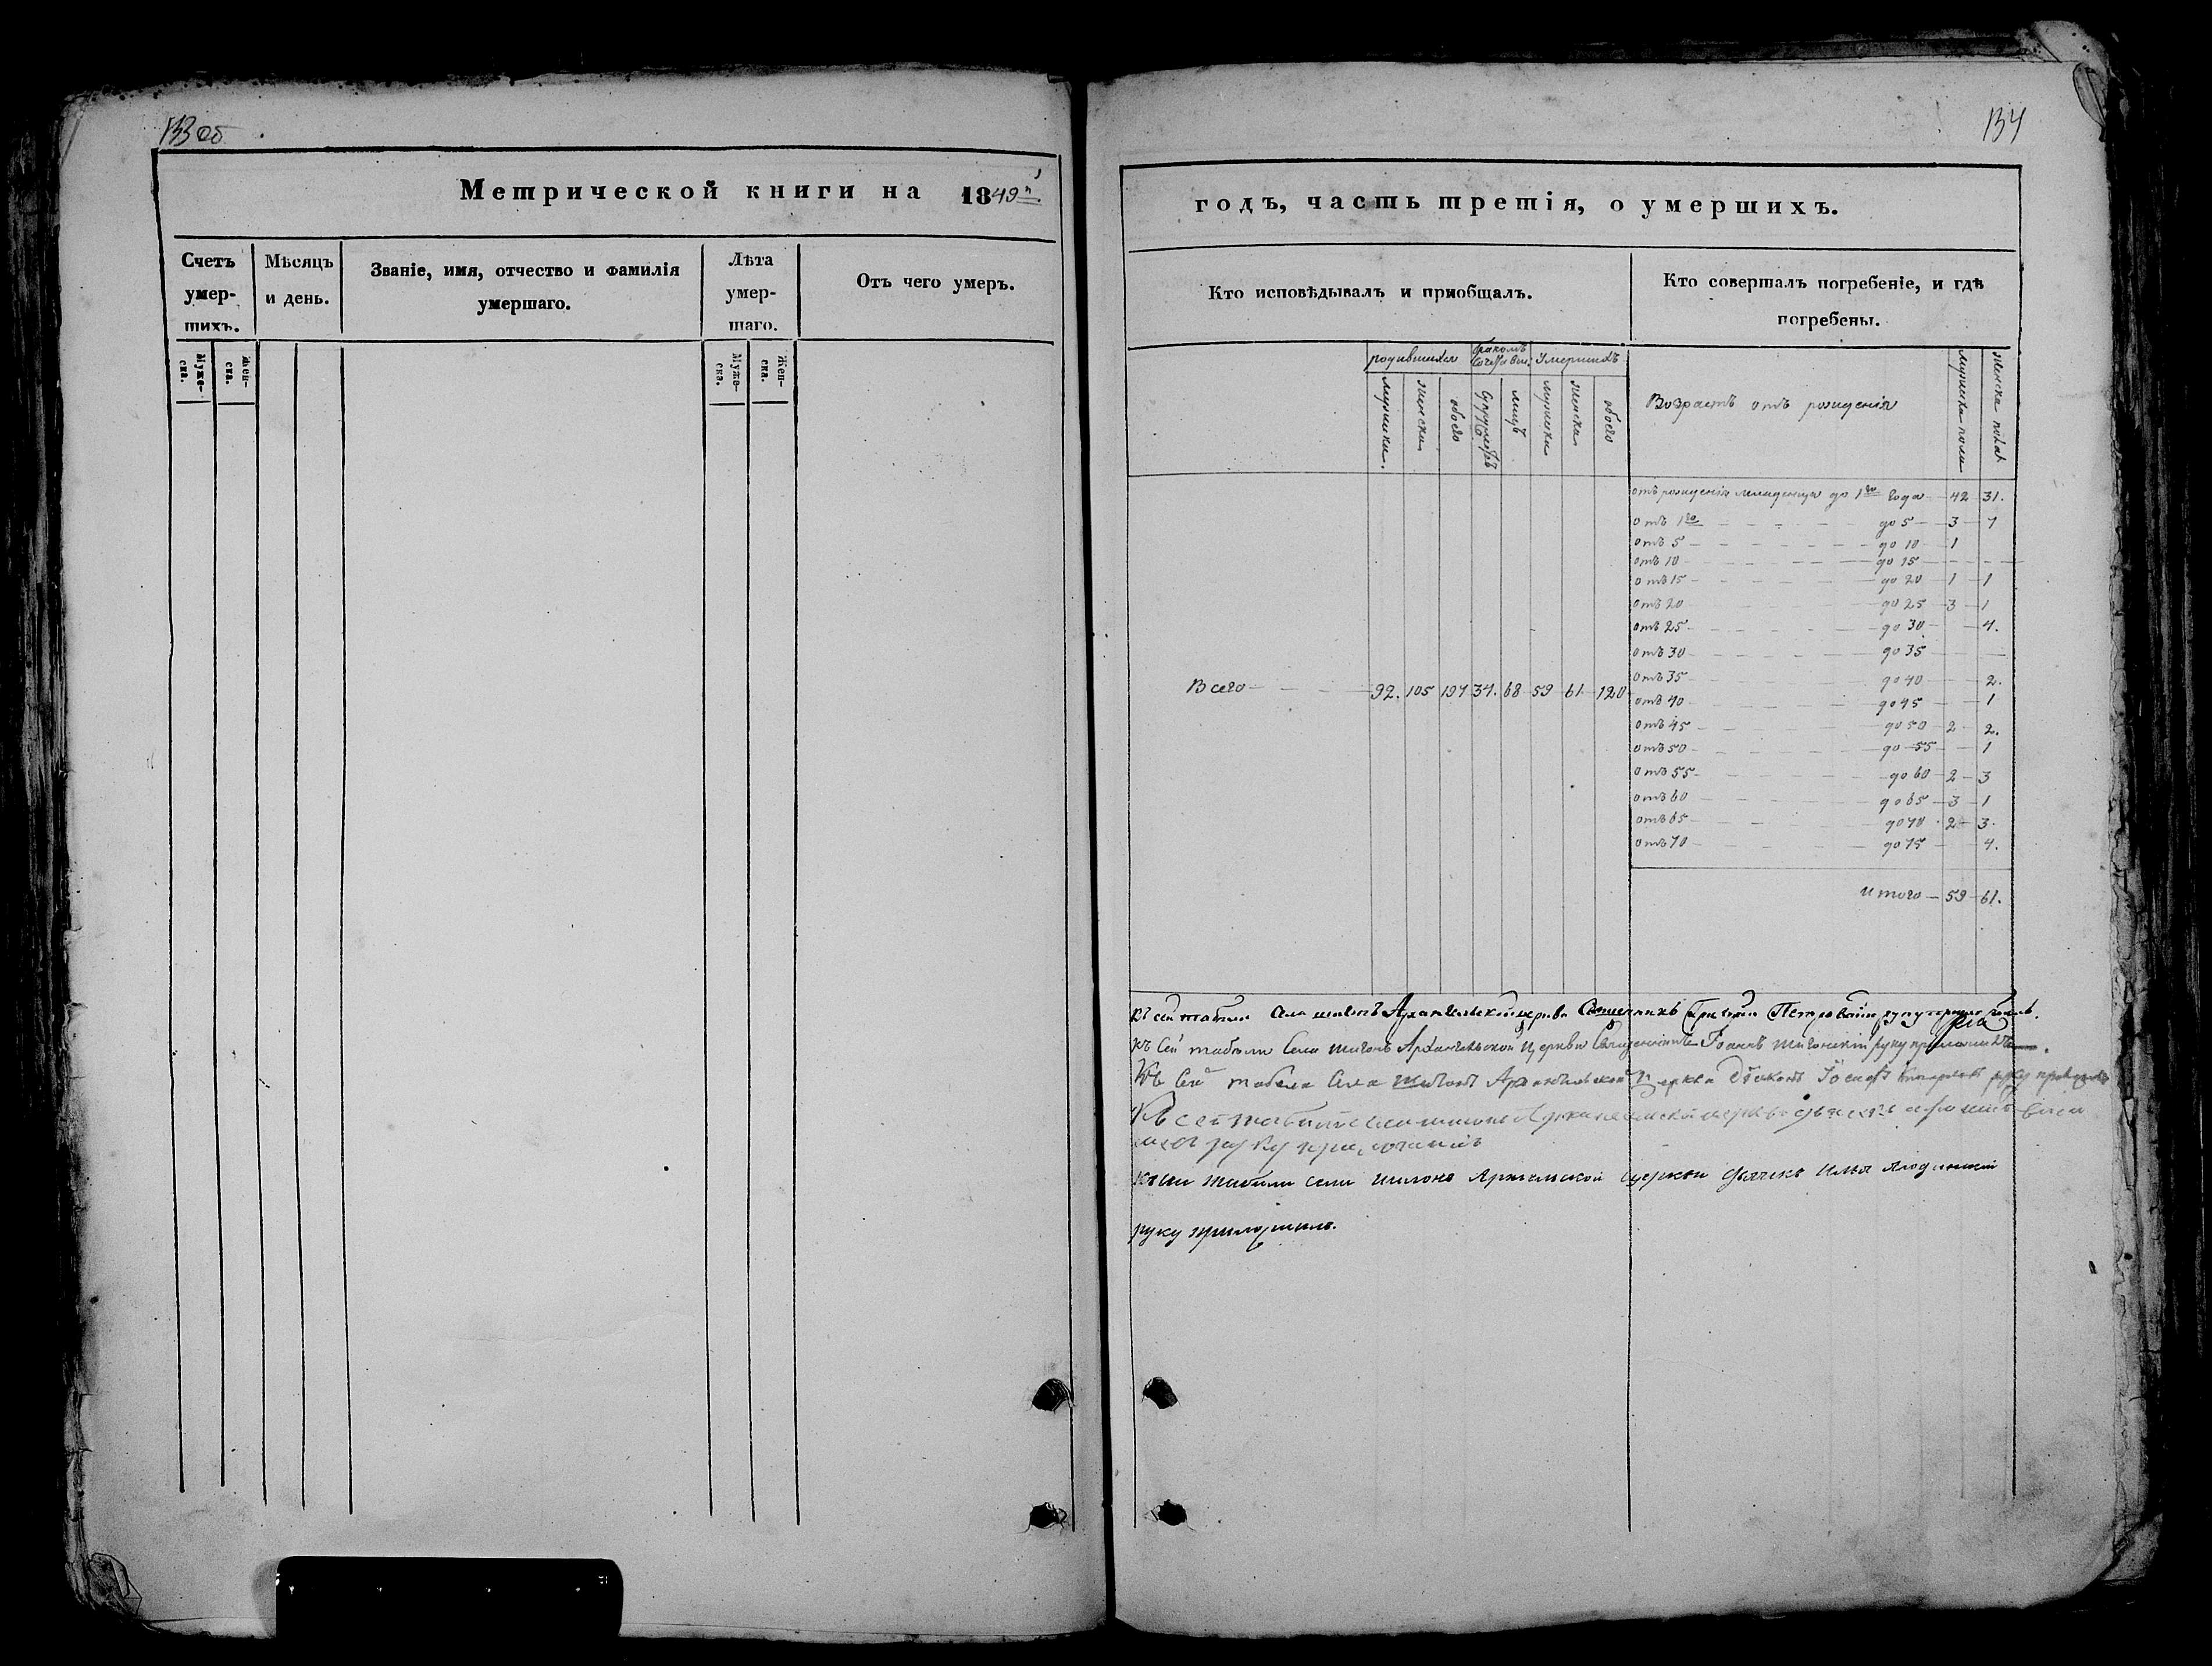 133 об
134
Метрической книги на 1849й
годъ, часть третія, о умершихъ.
Счетъ умер-
шихъ.
Мѣсяцъ
и день.
Званіе, имя, отчество и фамилія
умершаго.
Лѣта
умер-
шаго.
Отъ чего умеръ.
Муже-
ска.
Жен-
ска.
Муже-
ска.
Жен-
ска.
Кто исповѣдывалъ и приобщалъ.
Кто совершалъ погребеніе, и гдѣ
погребены.
родившихся
бракомъ
умершихъ
мужеска.
женска
обоего
лицъ
мужеска
женска
обоего
Возрастъ отъ рожденія
мужеска пола
женска пола
отъ рожденія младенца до 1го года 42 31.
отъ 1го до 5 3 7
отъ 5 до 10 1
отъ 10 до 15
отъ 15 до 20 1 1
отъ 20 до 25 3 1
отъ 25 до 30 4.
отъ 30 до 35
отъ 35 до 40 2.
отъ 40 до 45 1
отъ 45 до 50 2 2.
отъ 50 до 55 1
отъ 55 до 60 2 3
отъ 60 до 65 3 1
отъ 65 до 70 2 3.
отъ 70 до 75 4.
Всего 92. 105 197 34. 68 59 61 120
итого 59 61.
къ сей табели села Архангельской церкви Священникъ Петровъ руку приложилъ.
къ сей табели села Архангельской церкви Священникъ Іоаннъ руку приложилъ.
Къ сей табели села Архангельской церкви Діаконъ руку приложилъ
Къ сей табели села
руку приложилъ
къ сей табели села церкви дьячекъ Илья
руку приложилъ.